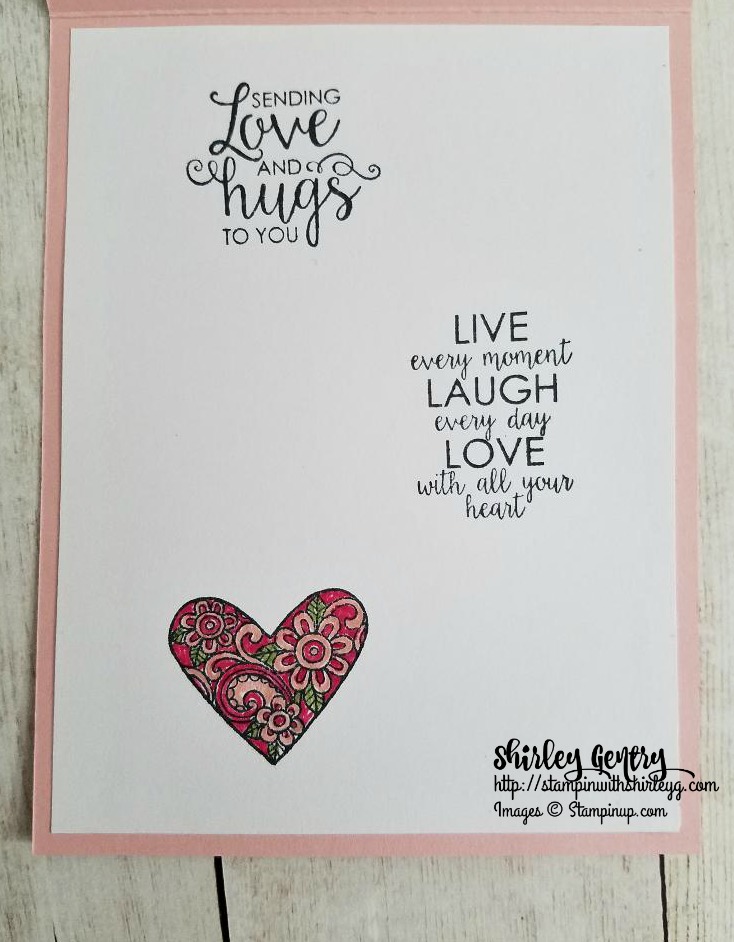 SENDING
Love
AND
hugs
TO YOU
LIVE
every moment
LAUGH
every day
LOVE
with all your
heart
Shirley Gentry
http://stampinwithshirleyg.com
Images © Stampinup.com